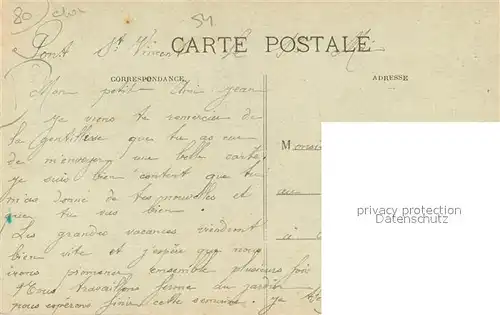 80
54
Pont St Vincent le
CARTE POSTALE
CORRESPONDANCE
ADRESSE
Mon petit Ami Jean
Je viens te remercier de
la gentillesse que tu as eue
de m'envoyer une belle carte
je suis bien content que tu
m'as donné de tes nouvelles et
que tu vas bien.
Les grandes vacances viendront
bien vite et j'espère que nous
irons promener ensemble plusieurs fois
Nous travaillons ferme au jardin
nous espérons finir cette semaine. je
Monsie
au
à
privacy protection
Datenschutz